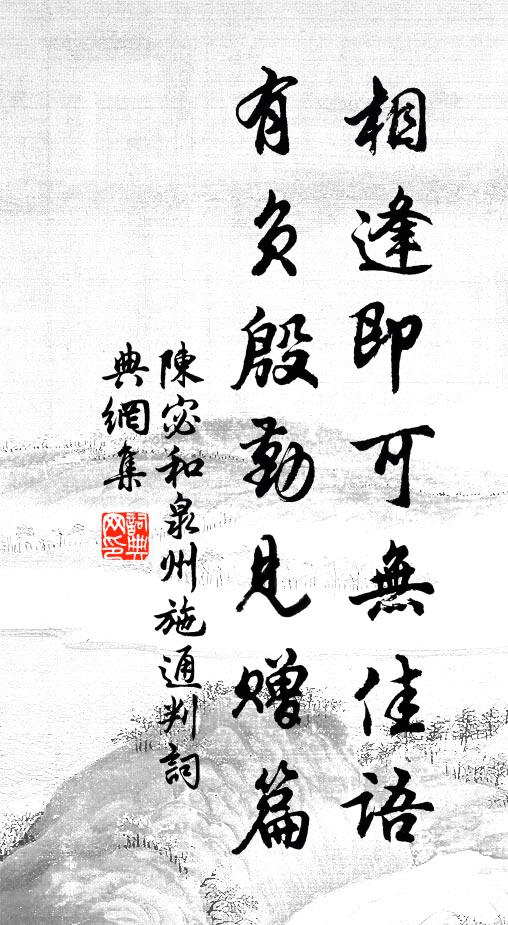 相逢即可無佳語
有負殷勤見贈篇
陳宓和泉州施通判詞
典網集
詞典網印